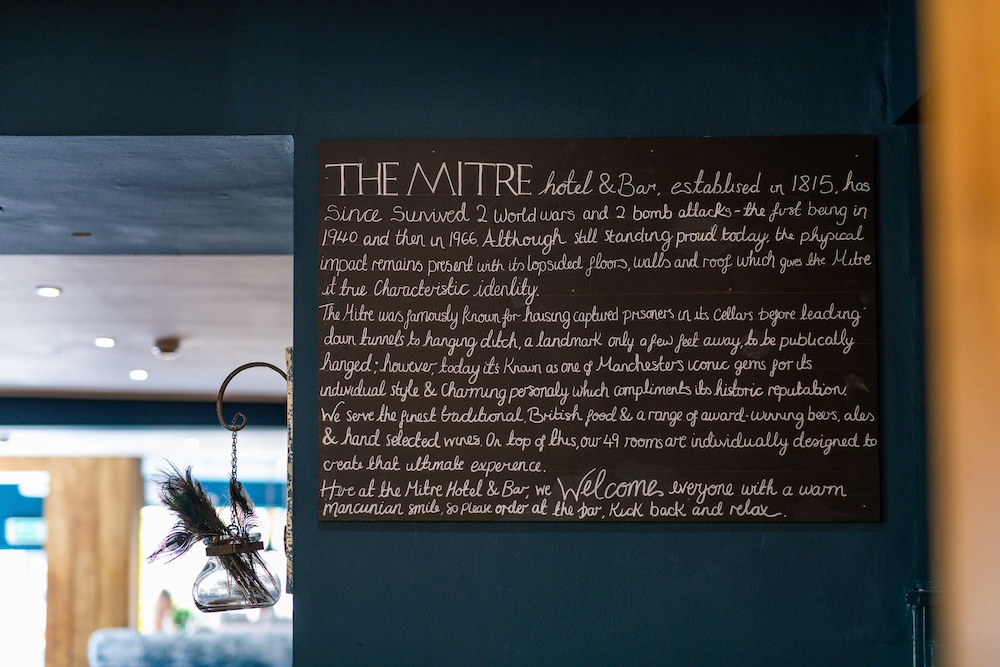 THE MITRE hotel & Bar, established in 1815, has
Since Survived 2 World wars and 2 bomb attacks - the first being in
1940 and then in 1966. Although still standing proud today, the physical
impact remains present with its lopsided floors, walls and roof which gives the Mitre
it true Characteristic identity.
The Mitre was famously Known for housing captured prisoners in its Cellars before leading
down tunnels to hanging ditch, a landmark only a few feet away, to be publically
hanged; however, today it's Known as one of Manchesters iconic gems for its
individual style & Charming personaly which compliments its historic reputation.
We serve the finest traditional, British food & a range of award-winning beers, ales
& hand selected wines. On top of this, our 49 rooms are individually designed to
create that ultimate experence.
Here at the Mitre Hotel & Bar, we Welcome everyone with a warm
mancunian smile, so please order at the bar, Kick back and relax.